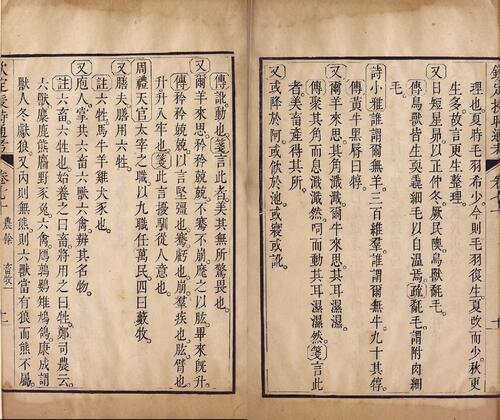 理也夏時毛羽希少今則毛羽復生夏改而少秋更
生多故言更生整理
又日短星昴以正仲冬厥民隩鳥獸氄毛
傳鳥獸皆生耎毳細毛以自溫焉疏氄毛謂附肉細
毛
詩小雅誰謂爾無羊三百維羣誰謂爾無牛九十其犉
傳黃牛黑脣曰犉
又爾羊來思其角濈濈爾牛來思其耳濕濕
傳聚其角而息濈濈然呞而動其耳濕濕然箋言此
者美畜產得其所
又或降於阿或飲於池或寢或訛
傳訛動也箋言此者美其無所驚畏也
又爾羊來思矜矜兢兢不騫不崩麾之以肱畢來旣升
傳矜矜兢兢以言堅彊也騫虧也崩羣疾也肱臂也
升升入牢也箋此言擾馴從人意也
周禮天官太宰之職以九職任萬民四曰藪牧
又膳夫膳用六牲
註六牲馬牛羊雞犬豕也
又庖人掌共六畜六獸六禽辨其名物
註六畜六牲也始養之曰畜將用之曰牲鄭司農云
六獸麋鹿熊麕野豕兔六禽鴈鶉鷃雉鳩鴿康成謂
獸人冬獻狼又內則無熊則六獸當有狼而熊不屬
欽定授時通考 卷七十 農餘 畜牧一 十一